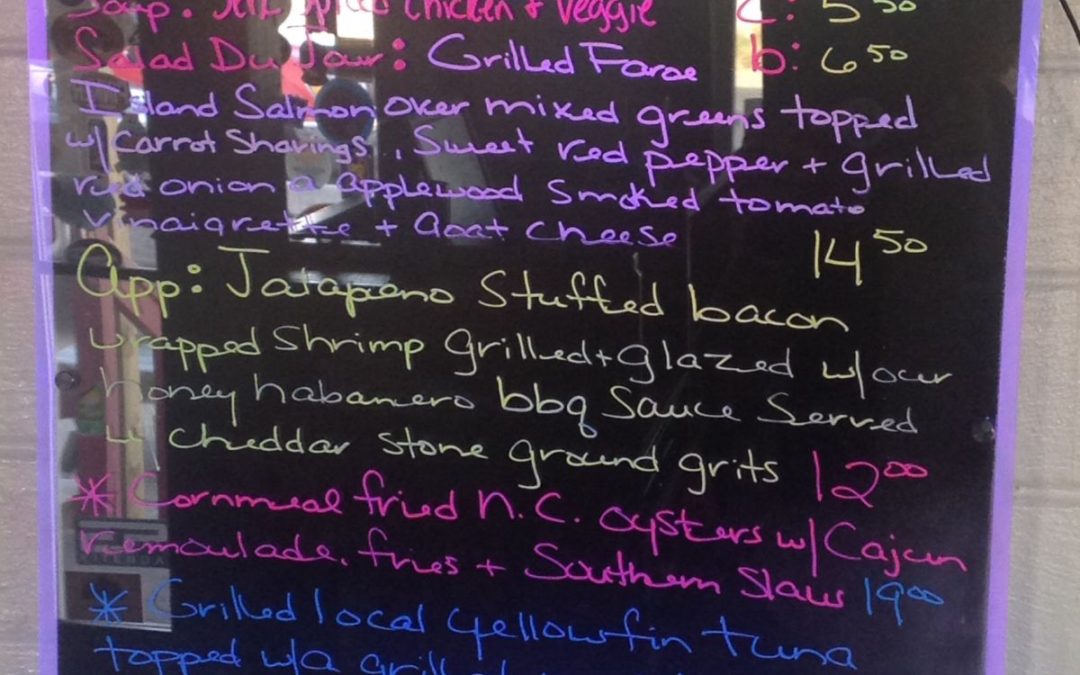 Soup: Spiced Chicken + Veggie C: 5 50
Salad Du Jour: Grilled Faroe b: 6 50
Island Salmon over mixed greens topped
w/ Carrot Shavings, Sweet red pepper + grilled
red onion a applewood smoked tomato
vinaigrette + Goat cheese 14 50
App: Jalapeno Stuffed bacon
wrapped Shrimp grilled + glazed w/ our
honey habanero bbq Sauce Served
w/ cheddar stone ground grits 12 00
* Cornmeal fried N.C. oysters w/ Cajun
remoulade, fries + Southern Slaw 19 00
* Grilled local yellowfin tuna
topped w/a grilled